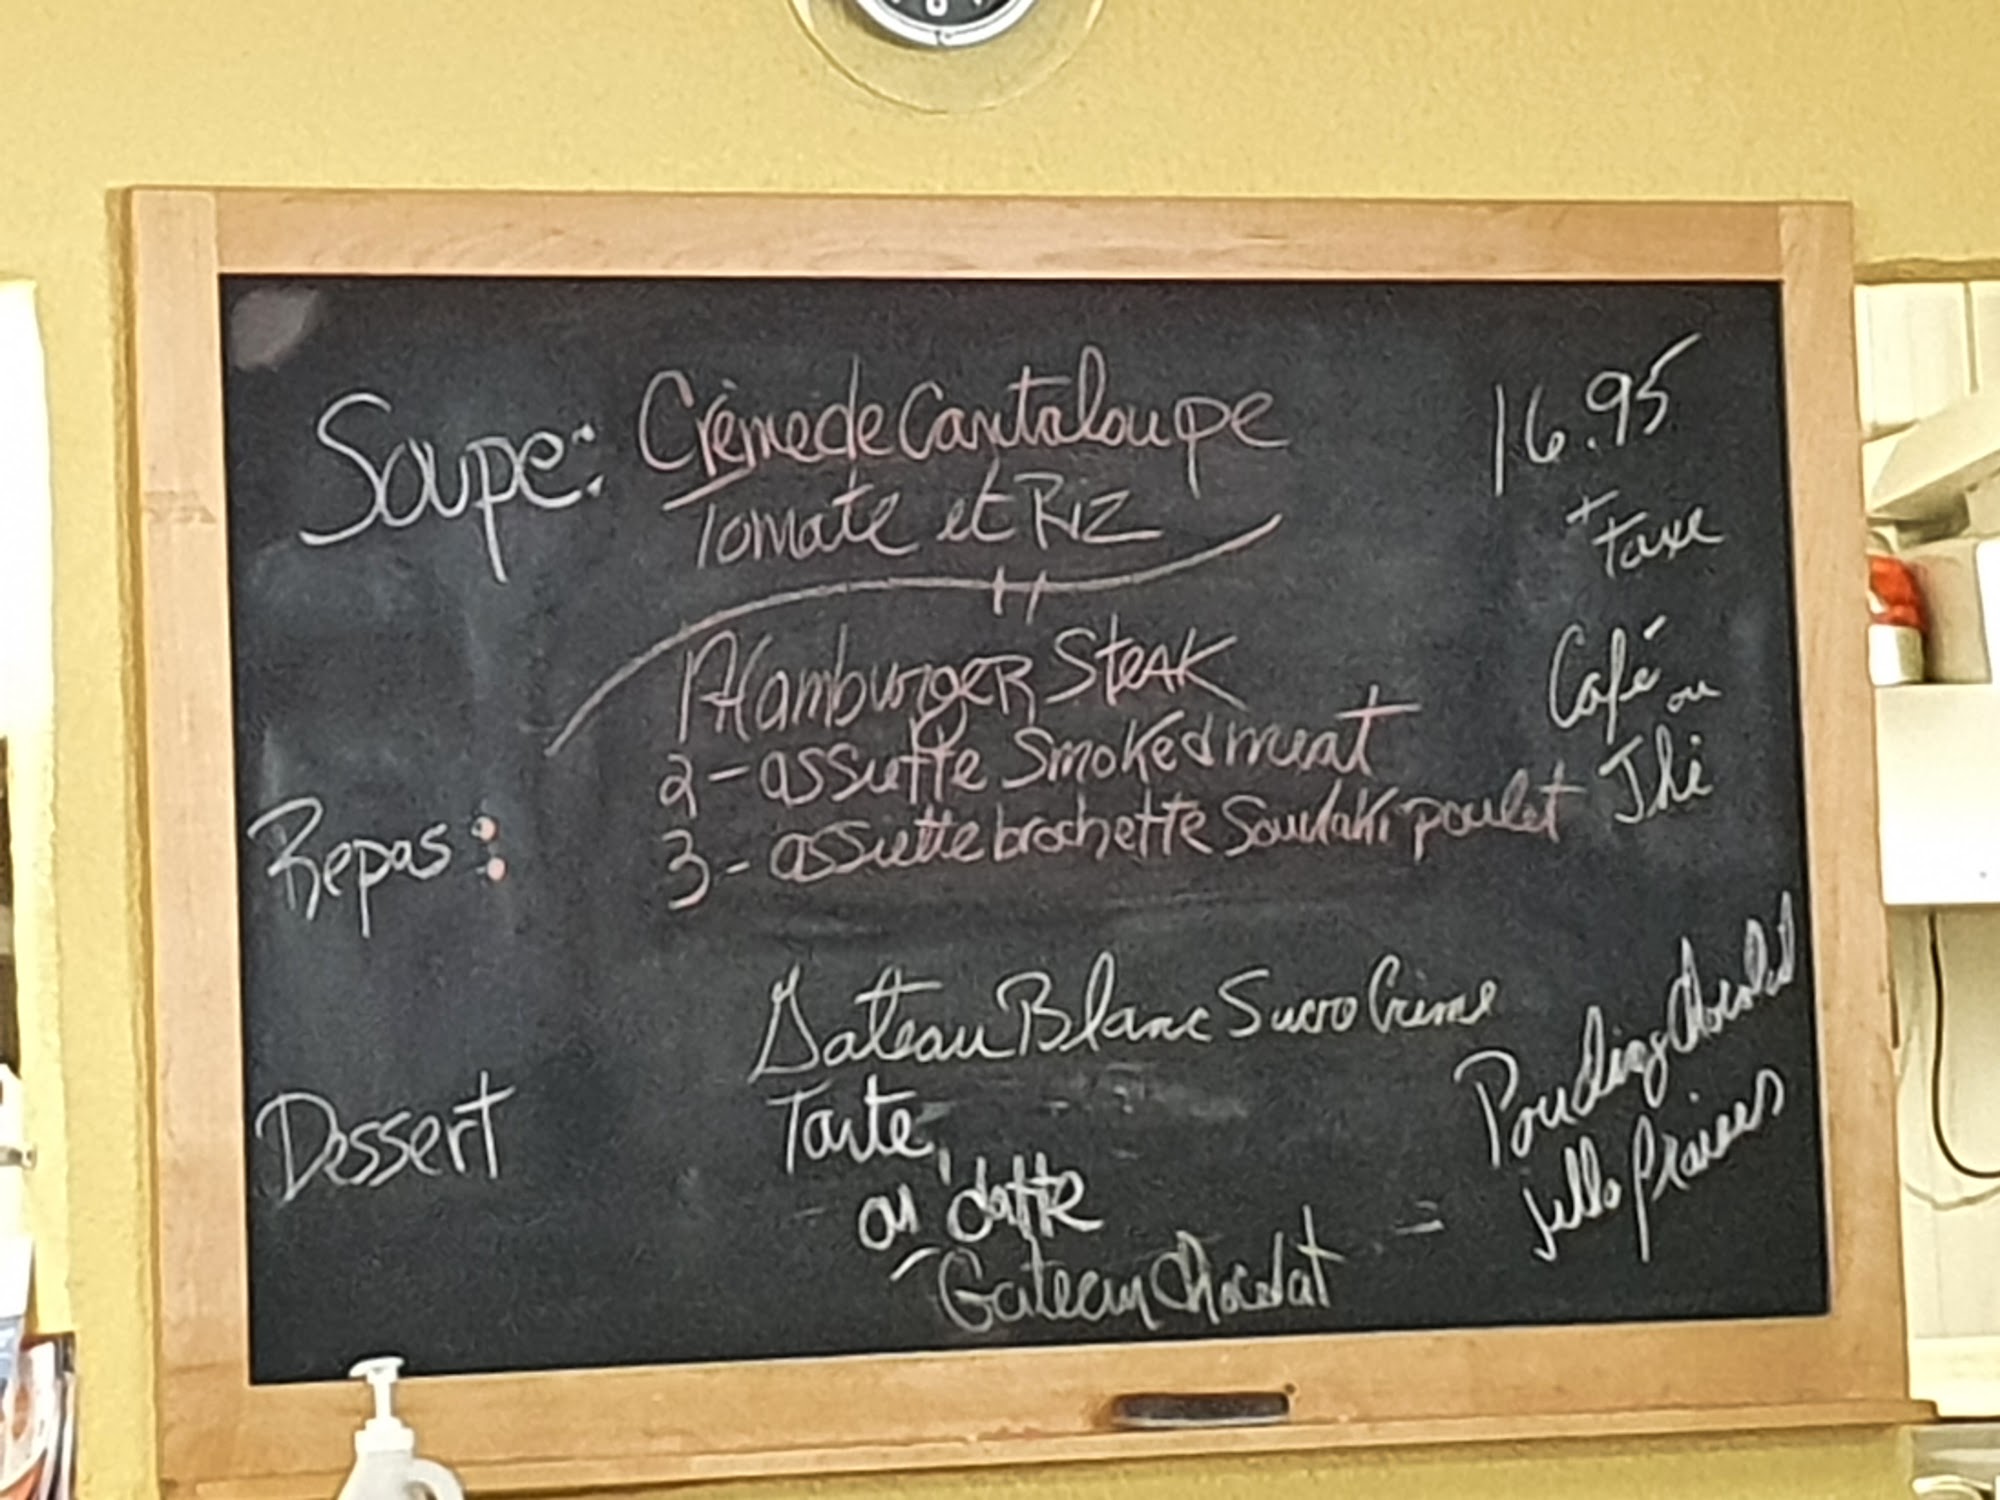 Soupe: Crème de Cantaloupe
Tomate et Riz
16.95
+ taxe
Café ou
Thé
Repas:
1- Hamburger Steak
2- assiette Smoked meat
3- assiette brochette Souvlaki poulet
Dessert
Gateau Blanc Sucre Crème
Tarte
datte
Gateau Chocolat
Pouding Chocolat
Jello fraises